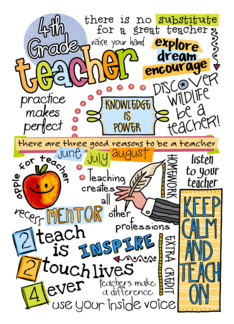 4th
Grade
teacher
there is no substitute
for a great teacher
raise your hand
explore
dream
encourage
practice
makes
perfect
KNOWLEDGE
IS
POWER
DISCOVER
WILDLIFE
be a
teacher!
there are three good reasons to be a teacher
june july august
apple for teacher
Teaching
creates
all
other
professions
HOMEWORK
listen
to your
teacher
recess
MENTOR
2 teach
is
INSPIRE
2 touch lives
4 ever
EXTRA CREDIT
KEEP
CALM
AND
TEACH
ON
Teachers make
a difference
use your inside voice